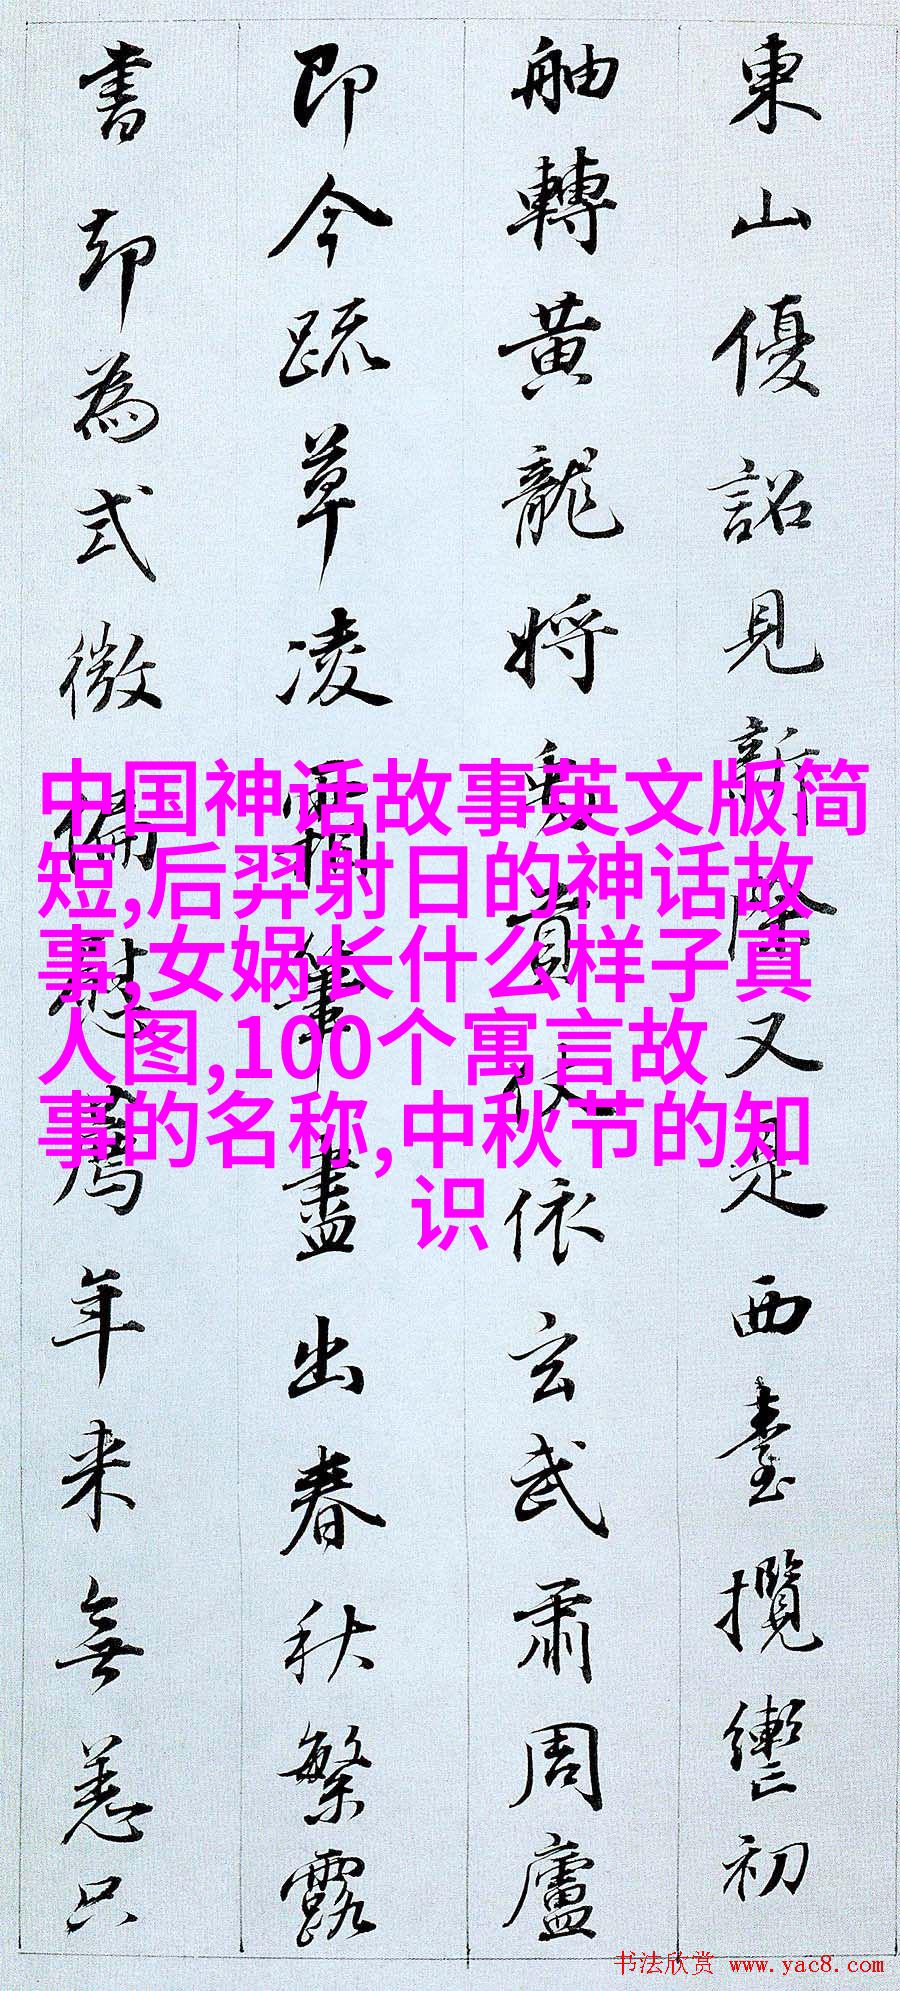 東山優詔見新除又是西臺攬轡初
舳轉黃龍將仗依玄武肅周廬
即今疏草凌霜筆盡出春秋繁露
書却為式微偏慰薦年来無恙只
中国神话故事英文版简
短,后羿射日的神话故
事,女娲长什么样子真
人图,100个寓言故
事的名称,中秋节的知
识
书法欣赏 www.yac8.com